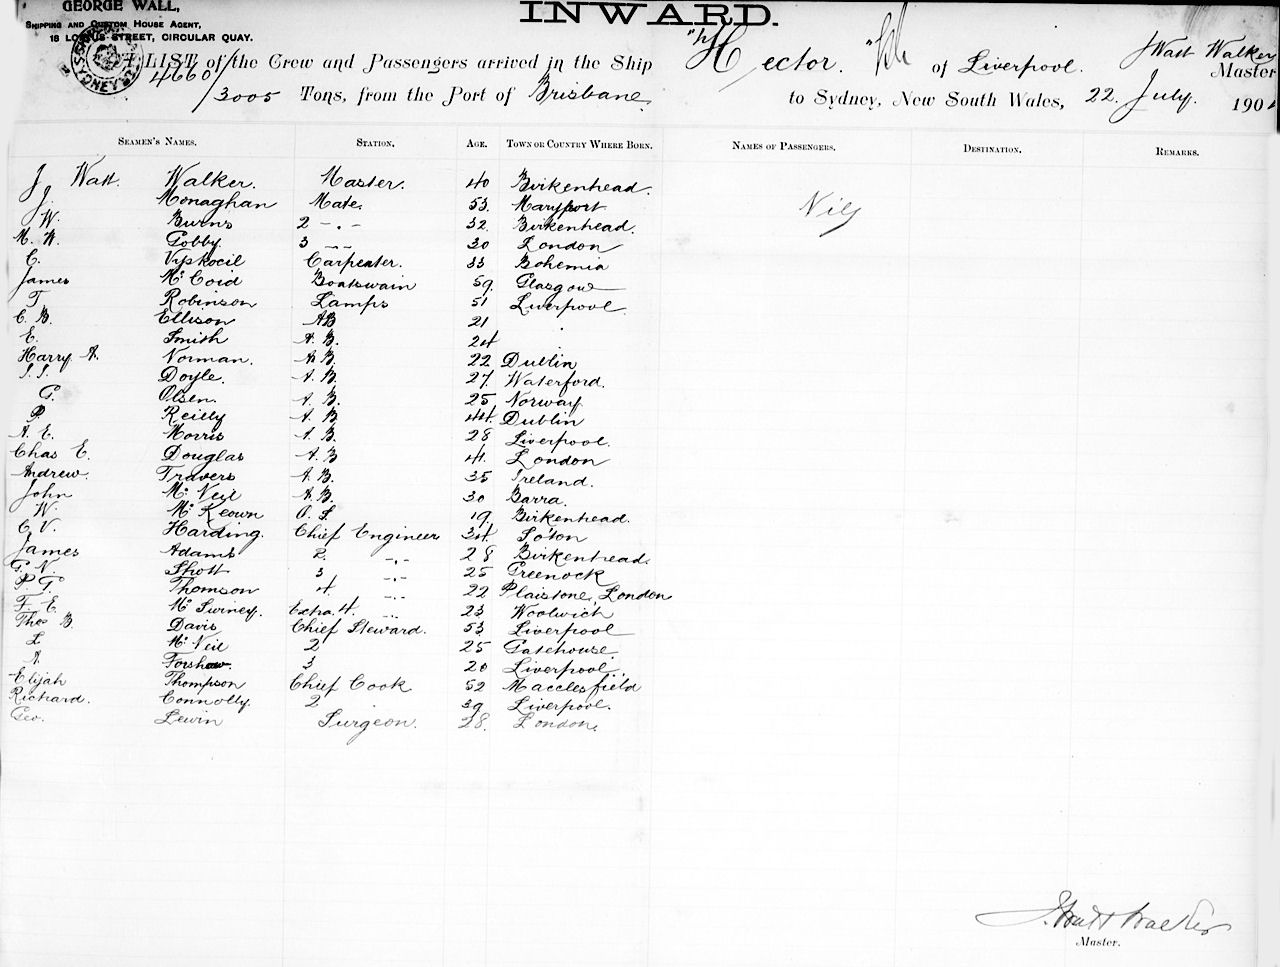 GEORGE WALL,
SHIPPING AND CUSTOM HOUSE AGENT,
18 LOFTUS STREET, CIRCULAR QUAY.
INWARD.
A LIST of the Crew and Passengers arrived in the Ship "Hector." of Liverpool. J Watt Walker Master
4660/3005 Tons, from the Port of Brisbane to Sydney, New South Wales, 22. July. 190
SEAMEN'S NAMES. STATION. AGE. TOWN OR COUNTRY WHERE BORN. NAMES OF PASSENGERS. DESTINATION. REMARKS.
J Watt. Walker. Master. 40 Birkenhead.
J. Monaghan Mate. 53. Maryport Nil
W. Burns 2 -.- 32. Birkenhead.
M. W. Gobby. 3 -.- 30 London
C. Vyskocil Carpenter. 33 Bohemia
James McCoid Boatswain 59. Glasgow
T Robinson Lamps 51 Liverpool
C. B. Ellison AB 21
E. Smith A. B. 24
Harry A. Norman. A B. 22 Dublin
S.S. Doyle. A. B. 27. Waterford.
G. Olsen. A. B. 25 Norway
P. Reilly A. B 44. Dublin
A. E. Morris A. B. 28 Liverpool.
Chas E. Douglas A. B 41. London
Andrew. Travers A. B. 35 Ireland.
John McNeil A. B. 30 Barra.
W. McKeown O. S. 19. Birkenhead.
C. V. Harding. Chief Engineer 34. So'ton
James Adams 2. -.- 28 Birkenhead.
G. N. Shott 3 -.- 25 Greenock
P. G. Thomson 4. -.- 22 Plaistone, London
F. E. McSwiney. Extra 4. -.- 23 Woolwich
Thos B. Davis Chief Steward. 53 Liverpool
L. McNeil 2 25 Gatehouse.
A. Forshaw. 3 20 Liverpool.
Elijah Thompson Chief Cook 52 Macclesfield
Richard. Connolly. 2. 39 Liverpool.
Geo. Lewin Surgeon. 28. London.
J. Watt Walker
Master.